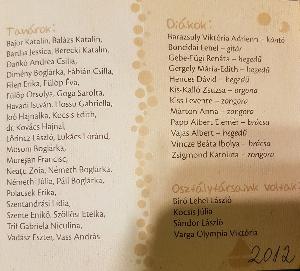 Tanárok:
Bajor Katalin, Balázs Katalin,
Bartha Jessica, Berecki Katalin,
Dankó Andrea Csilla,
Dimény Boglárka, Fábián Csilla,
Filen Erika, Fülöp Éva,
Fülöp Orsolya, Goga Sarolta,
Havadi István, Hossu Gabriella,
Joó Hajnalka, Kecskés Edith,
dr. Kovács Hajnal,
Lőrincz László, Lukács Lóránd,
Mosoni Boglárka,
Mureșan Francisc,
Neațu Zoia, Németh Boglárka,
Németh Júlia, Pál Boglárka,
Polacsek Erika,
Szentandrási Lídia,
Szente Enikő, Szőllősi Etelka,
Trif Gabriela Niculina,
Vadász Eszter, Vass András
Diákok:
Barazsuly Viktória Adrienn – kántó
Boncidai Lehel – gitár
Gebe-Fügi Renáta – hegedű
Gergely Mária-Edith – hegedű
Hencés Dávid – hegedű
Kis-Kalló Zsuzsa – orgona
Kiss Levente – zongora
Márton Anna – zongora
Papp Albert Elemér – brácsa
Vajas Albert – hegedű
Vincze Beáta Ibolya – brácsa
Zsigmond Karolina – zongora
Osztálytársaink voltak:
Bíró Lehel László
Kocsis Júlia
Sándor László
Varga Olympia Viktória
2012